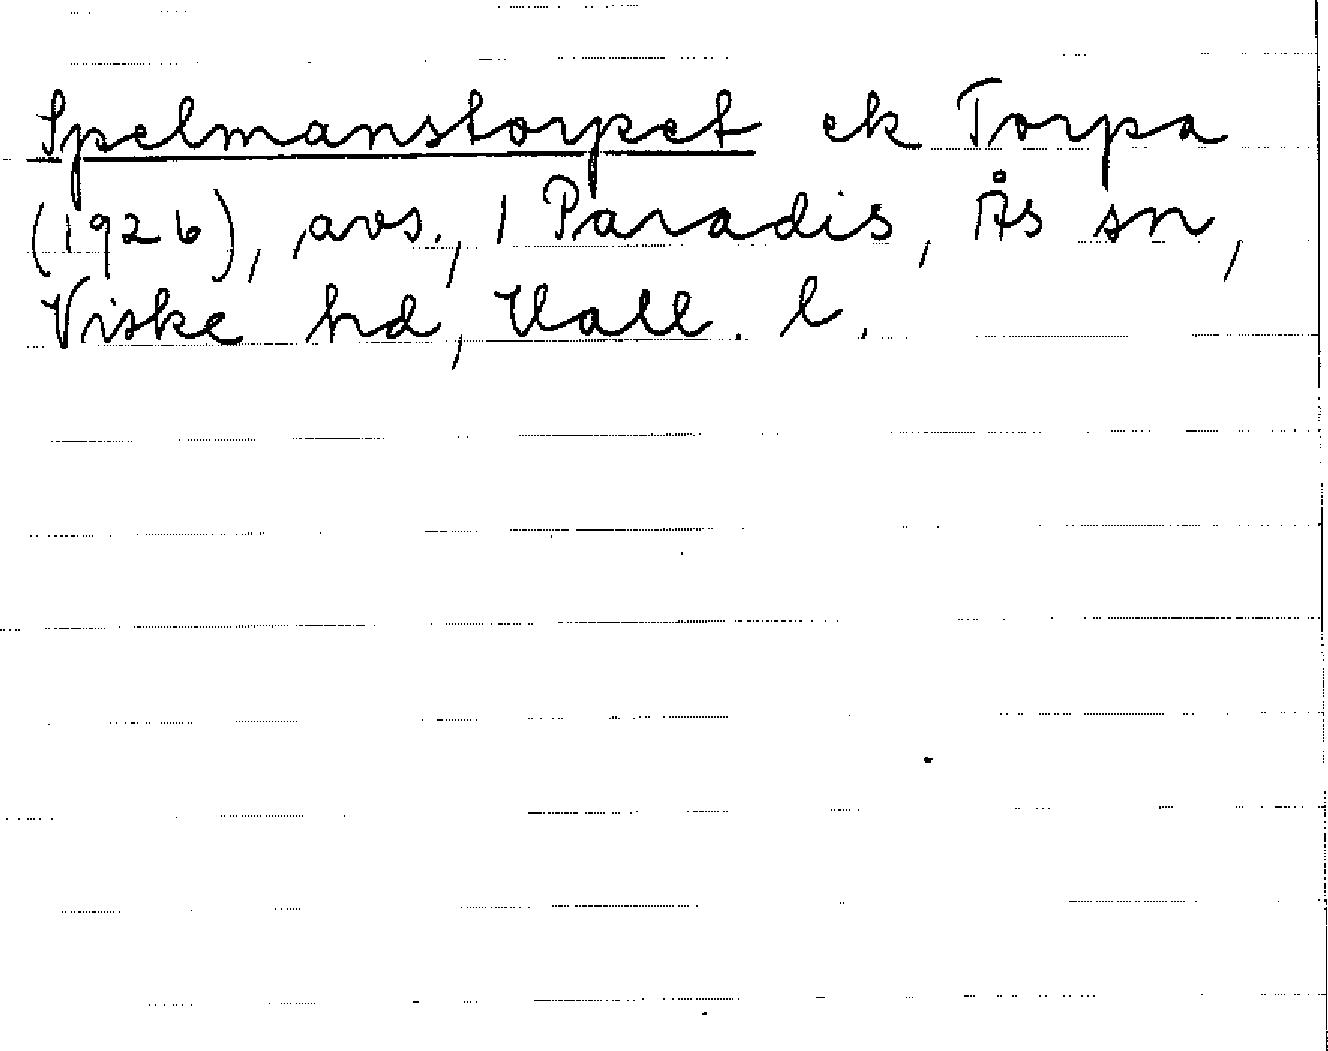 Spelmanstorpet ek Torpa
(1926), avs., 1 Paradis, Ås sn,
Viske hd, Hall. l.